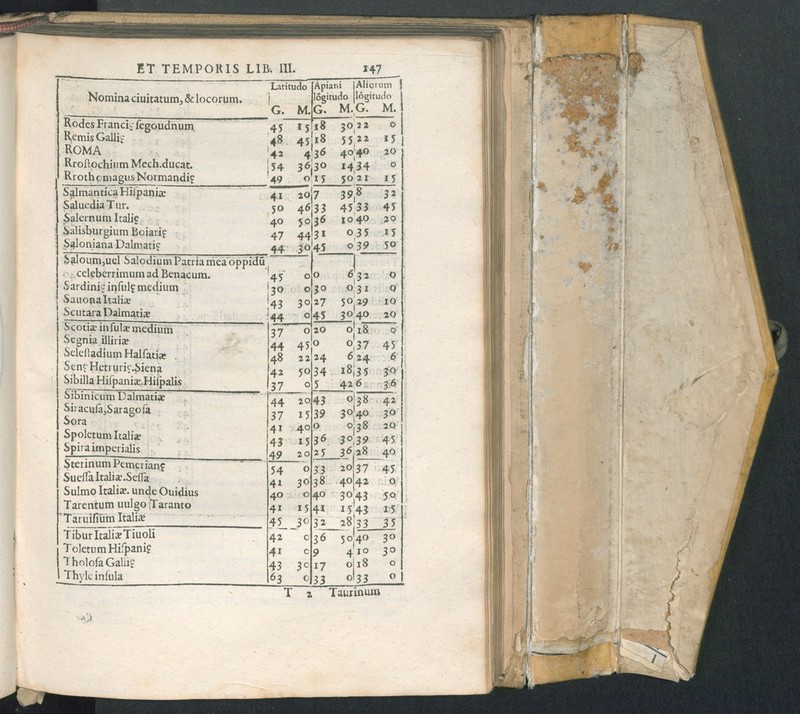 ET TEMPORIS LIB. III. 147
Nomina ciuitatum, & locorum. Latitudo Apiani lōgitudo Aliorum lōgitudo
G. M. G. M. G. M.
Rodes Francię segodnum 45 15 18 30 22 0
Remis Gallię 48 45 18 55 22 15
ROMA 42 4 36 40 40 20
Rrostochium Mech.ducat. 54 36 30 14 34 0
Rrothomagus Normandię 49 0 15 50 21 15
Salmantica Hispaniæ 41 20 7 39 8 32
Saluedia Tur. 50 46 33 45 33 45
Salernum Italię 40 50 36 10 40 20
Salisburgium Boiarię 47 44 31 0 35 15
Saloniana Dalmatię 44 30 45 0 39 50
Saloum,uel Salodium Patria mea oppidū
celeberrimum ad Benacum. 45 0 0 6 32 0
Sardinię insulę medium 30 0 30 0 31 0
Sauona Italiæ 43 30 27 50 29 10
Scutara Dalmatiæ 44 0 45 30 40 20
Scotiæ insulæ medium 37 0 20 0 18 0
Segnia illiriæ 44 45 0 0 37 45
Selestadium Halsatiæ 48 22 24 6 24 6
Senę Hetrurię.Siena 42 50 34 18 35 30
Sibilla Hispaniæ.Hispalis 37 0 5 42 6 36
Sibinicum Dalmatiæ 44 20 43 0 38 42
Siracusa,Saragosa 37 15 39 30 40 30
Sora 41 40 0 0 38 20
Spoletum Italiæ 43 15 36 30 39 45
Spira imperialis 49 20 25 36 28 40
Sterinum Pemerianę 54 0 33 20 37 45
Suessa Italiæ.Sessa 41 30 38 40 42 0
Sulmo Italiæ. unde Ouidius 40 0 40 30 43 50
Tarentum uulgo Taranto 41 15 41 15 43 15
Taruisium Italiæ 45 30 32 28 33 35
Tibur Italiæ Tiuoli 42 0 36 50 40 30
Toletum Hispanię 41 0 9 4 10 30
Tholosa Gallię 43 30 17 0 18 0
Thyle insula 63 0 33 0 33 0
T 2 Taurinum